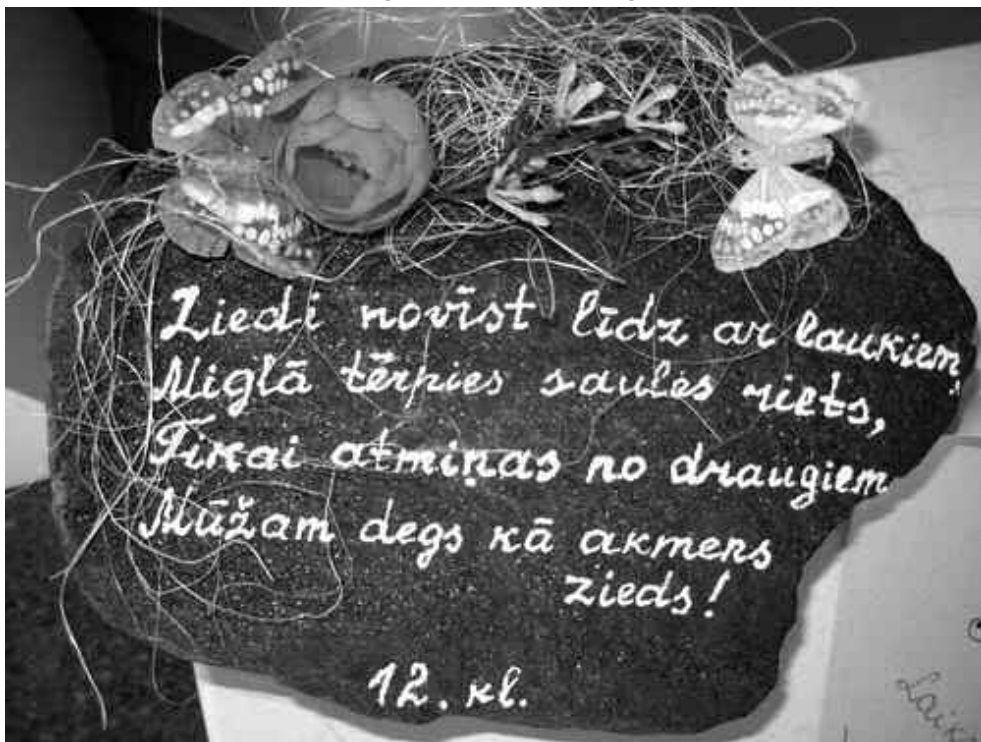 Ziedi novīst līdz ar laukiem,
Miglā tērpies saules riets,
Tikai atmiņas no draugiem
Mūžam degs kā akmens
zieds!
12. kl.